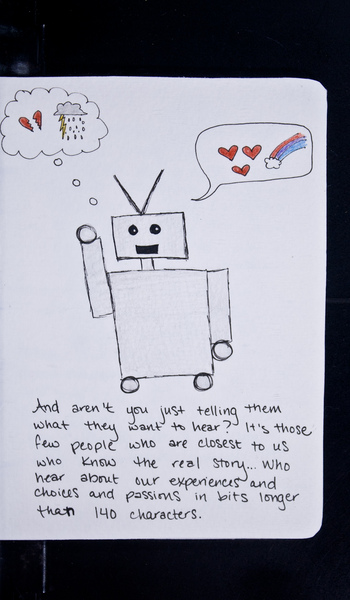 And aren't you just telling them
what they want to hear? It's those
few people who are closest to us
who know the real story... Who
hear about our experiences and
choices and passions in bits longer
than 140 characters.